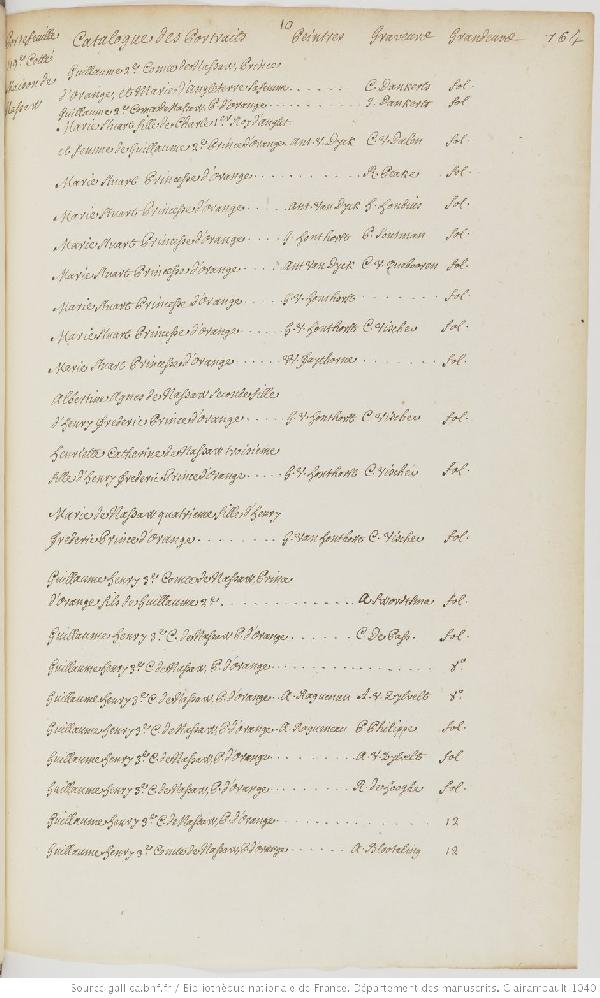 10
Portefeuille
Catalogue des Portraits Peintres Graveurs Grandeurs 164
Guillaume 2e Comte de Nassau, Prince
d'Orange, et Marie d'Angleterre sa femme . . . . . . C. Dankerts fol.
Guillaume 2e Comte de Nassau P. d'orange . . . . . . . . J. Dankerts fol.
Marie Stuart fille de Charles 1er Roy d'anglet.
et femme de Guillaume 2e Prince d'Orange Ant. V. Dyck C. V. Dalen fol.
Marie Stuart Princesse d'Orange . . . . . . . . . . . R. Peake fol.
Marie Stuart Princesse d'Orange . . . . Ant. Van Dyck H. Hondius fol.
Marie Stuart Princesse d'Orange . . . . G. Honthorst P. Soutman fol.
Marie Stuart Princesse d'Orange . . . . Ant Van Dyck C. V. Queboren fol.
Marie Stuart Princesse d'Orange . . . . G. V. Honthorst . . . . . . . fol.
Marie Stuart Princesse d'Orange . . . . G. V. Honthorst C. Vischer fol.
Marie Stuart Princesse d'Orange . . . . W. Faythorne . . . . . . . fol.
Albertine Agnes de Nassau seconde fille
d'Henry frederic Prince d'Orange . . . . G. V. Honthorst C. Vischer fol.
Henriette Catherine de Nassau troisieme
fille d'Henry frederic Prince d'Orange . . . . . G. V. Honthorst C. Vischer fol.
Marie de Nassau quatrieme fille d'Henry
frederic Prince d'Orange . . . . . . . . G. Van Honthorst C. Vischer fol.
Guillaume Henry 3e Comte de Nassau, Prince
d'Orange fils de Guillaume 2e . . . . . . . . . . . . . fol.
Guillaume Henry 3e C. de Nassau, P. d'Orange . . . . . . . C. De Pass. fol.
Guillaume Henry 3e C. de Nassau, P. d'orange . . . . . . . . . . . . . . . 8°
Guillaume Henry 3e C. de Nassau, P. d'Orange . . A. Raguenau A. V. Zylvelt 8°
Guillaume Henry 3e C. de Nassau, P. d'Orange . A. Ragueneau P. Philippe fol.
Guillaume Henry 3e C. de Nassau, P. d'Orange . . . . . . . . A. V. Zylvelt fol
Guillaume Henry 3e C. de Nassau, P. d'Orange . . . . . . . . R. de Hooghe fol.
Guillaume Henry 3e C. de Nassau, P. d'Orange . . . . . . . . . . . . . . . 12
Guillaume Henry 3e Comte de Nassau, P. d'orange . . . . . . A. Bloteling 12
Source gallica.bnf.fr / Bibliothèque nationale de France. Département des manuscrits. Clairambault 1040